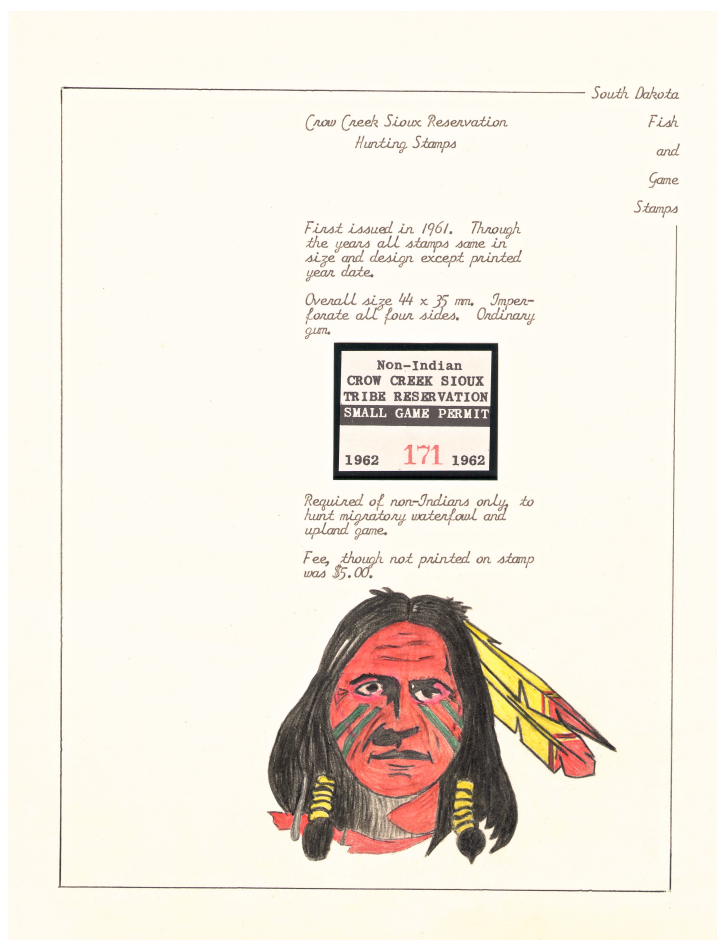 South Dakota
Fish
and
Game
Stamps
Crow Creek Sioux Reservation
Hunting Stamps
First issued in 1961. Through
the years all stamps same in
size and design except printed
year date.
Overall size 44 x 35 mm. Imper-
forate all four sides. Ordinary
gum.
Non-Indian
CROW CREEK SIOUX
TRIBE RESERVATION
SMALL GAME PERMIT
1962 171 1962
Required of non-Indians only, to
hunt migratory waterfowl and
upland game.
Fee, though not printed on stamp
was $5.00.